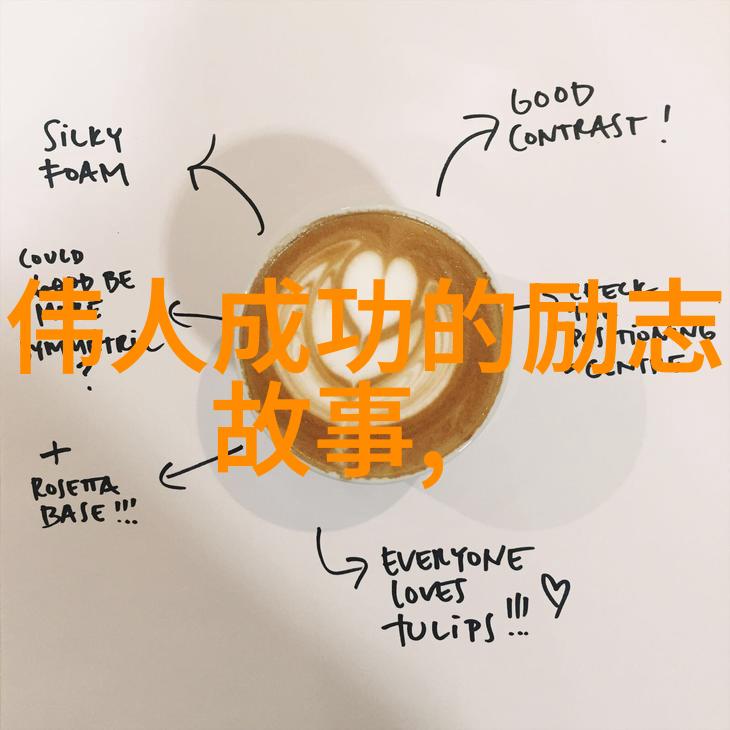 SILKY
FOAM
GOOD
CONTRAST!
COULD
BE
MORE
SYMMETRIC
?
CHECK
POSITIONING
CENTRE
伟人成功的励志
故事,
+
ROSETTA
BASE!!!
EVERYONE
LOVES
TULIPS!!! ♡